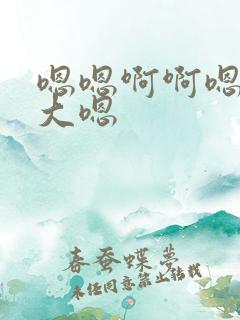 嗯嗯啊啊嗯
大嗯
春蚕蝶梦
未经同意禁止转载